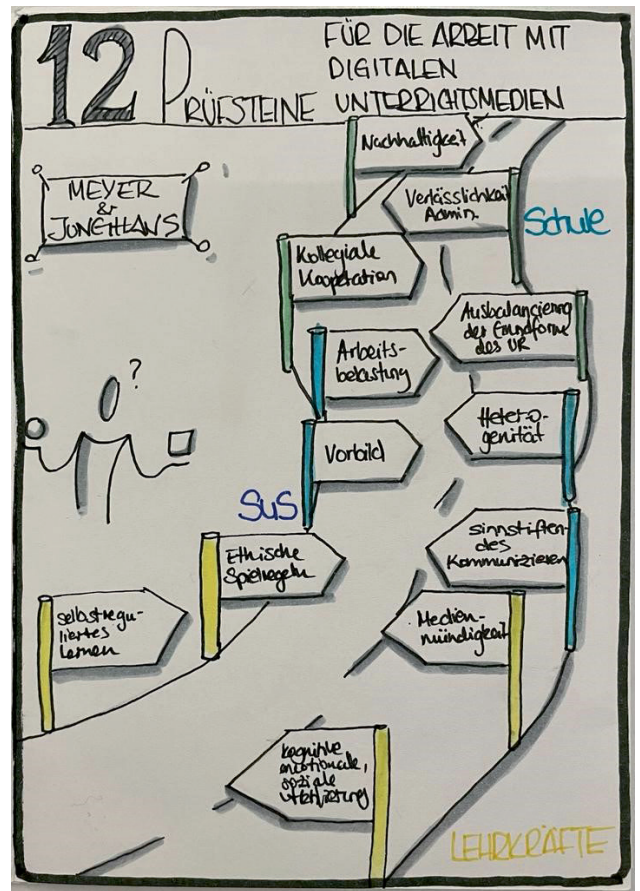 12 PRÜFSTEINE
FÜR DIE ARBEIT MIT
DIGITALEN
UNTERRICHTSMEDIEN
MEYER
&
JUNGHANS
Nachhaltigkeit
Verlässlichkeit
Admin.
Schule
Kollegiale
Kooperation
Ausbalancierung
der Grundforme
des UR
Arbeits-
belastung
Hetero-
genität
Vorbild
SuS
sinnstiften-
des
Kommunizieren
Ethische
Spielregeln
?
selbstregu-
liertes
Lernen
Medien-
mündigkeit
kognitive
emotionale,
soziale
LEHRKRÄFTE